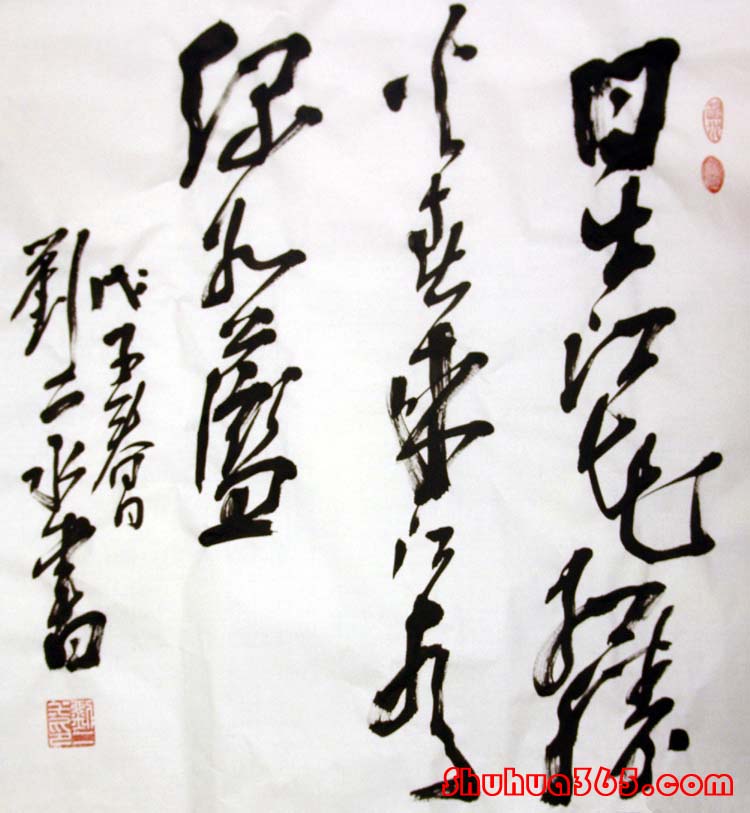 日出江花紅勝
火春來江水
綠如藍
戊子春日
劉二永書
shuhua365.com